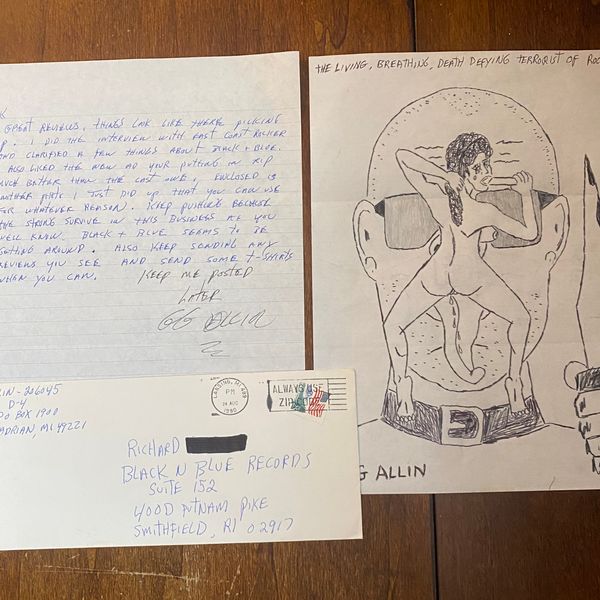 K
GREAT REVIEWS, THINGS LOOK LIKE THERE PICKING
P. I DID THE INTERVIEW WITH EAST COAST ROCKER
AND CLARIFIED A FEW THINGS ABOUT BLACK + BLUE.
ALSO LIKED THE NEW AD YOUR PUTTING IN RIP
MUCH BETTER THAN THE LAST ONE, ENCLOSED IS
ANOTHER I JUST DID UP THAT YOU CAN USE
FOR WHATEVER REASON. KEEP PUSHING BECAUSE
THE STRONG SURVIVE IN THIS BUSINESS AS YOU
WELL KNOW. BLACK + BLUE SEAMS TO BE
GETTING AROUND. ALSO KEEP SENDING ANY
REVIEWS YOU SEE AND SEND SOME T-SHIRTS
WHEN YOU CAN. KEEP ME POSTED
LATER
GG ALLIN
THE LIVING, BREATHING, DEATH DEFYING TERRORIST OF ROC
G ALLIN
LIN-206045
D-4
PO BOX 1900
ADRIAN, MI 49221
LANSING, MI
PM
AUG
1990
ALWAYS USE
ZIP CODE
RICHARD
BLACK N BLUE RECORDS
SUITE 152
400D PUTNAM PIKE
SMITHFIELD, RI 02917